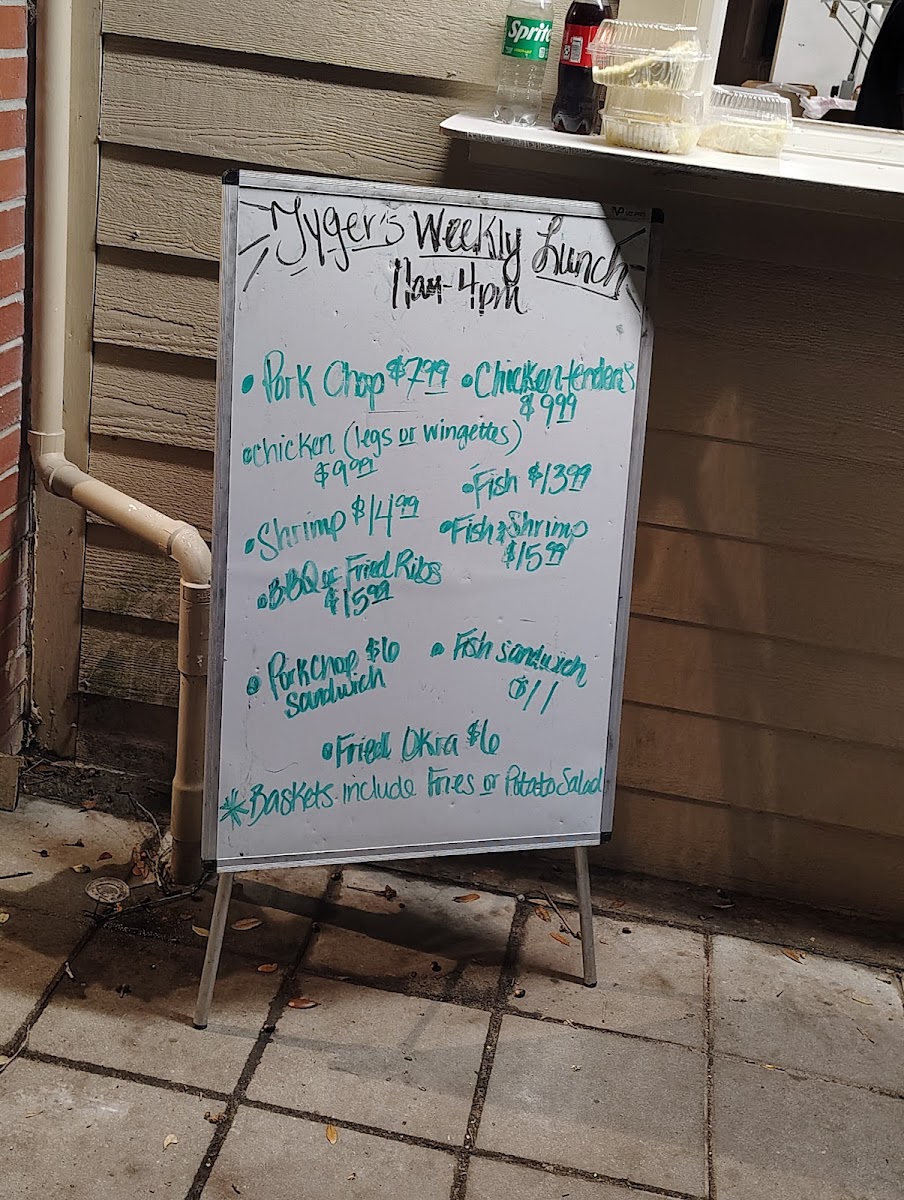 Sprite
Tyger's Weekly Lunch
11am-4pm
• Pork Chop $7.99 • Chicken tenders
$9.99
• chicken (legs or wingettes)
$9.99
• Fish $13.99
• Shrimp $14.99
• Fish & Shrimp
$15.99
• BBQ or Fried Ribs
$15.99
• Pork Chop $6
sandwich
• Fish sandwich
$11
• Fried Okra $6
* Baskets include Fries or Potato Salad